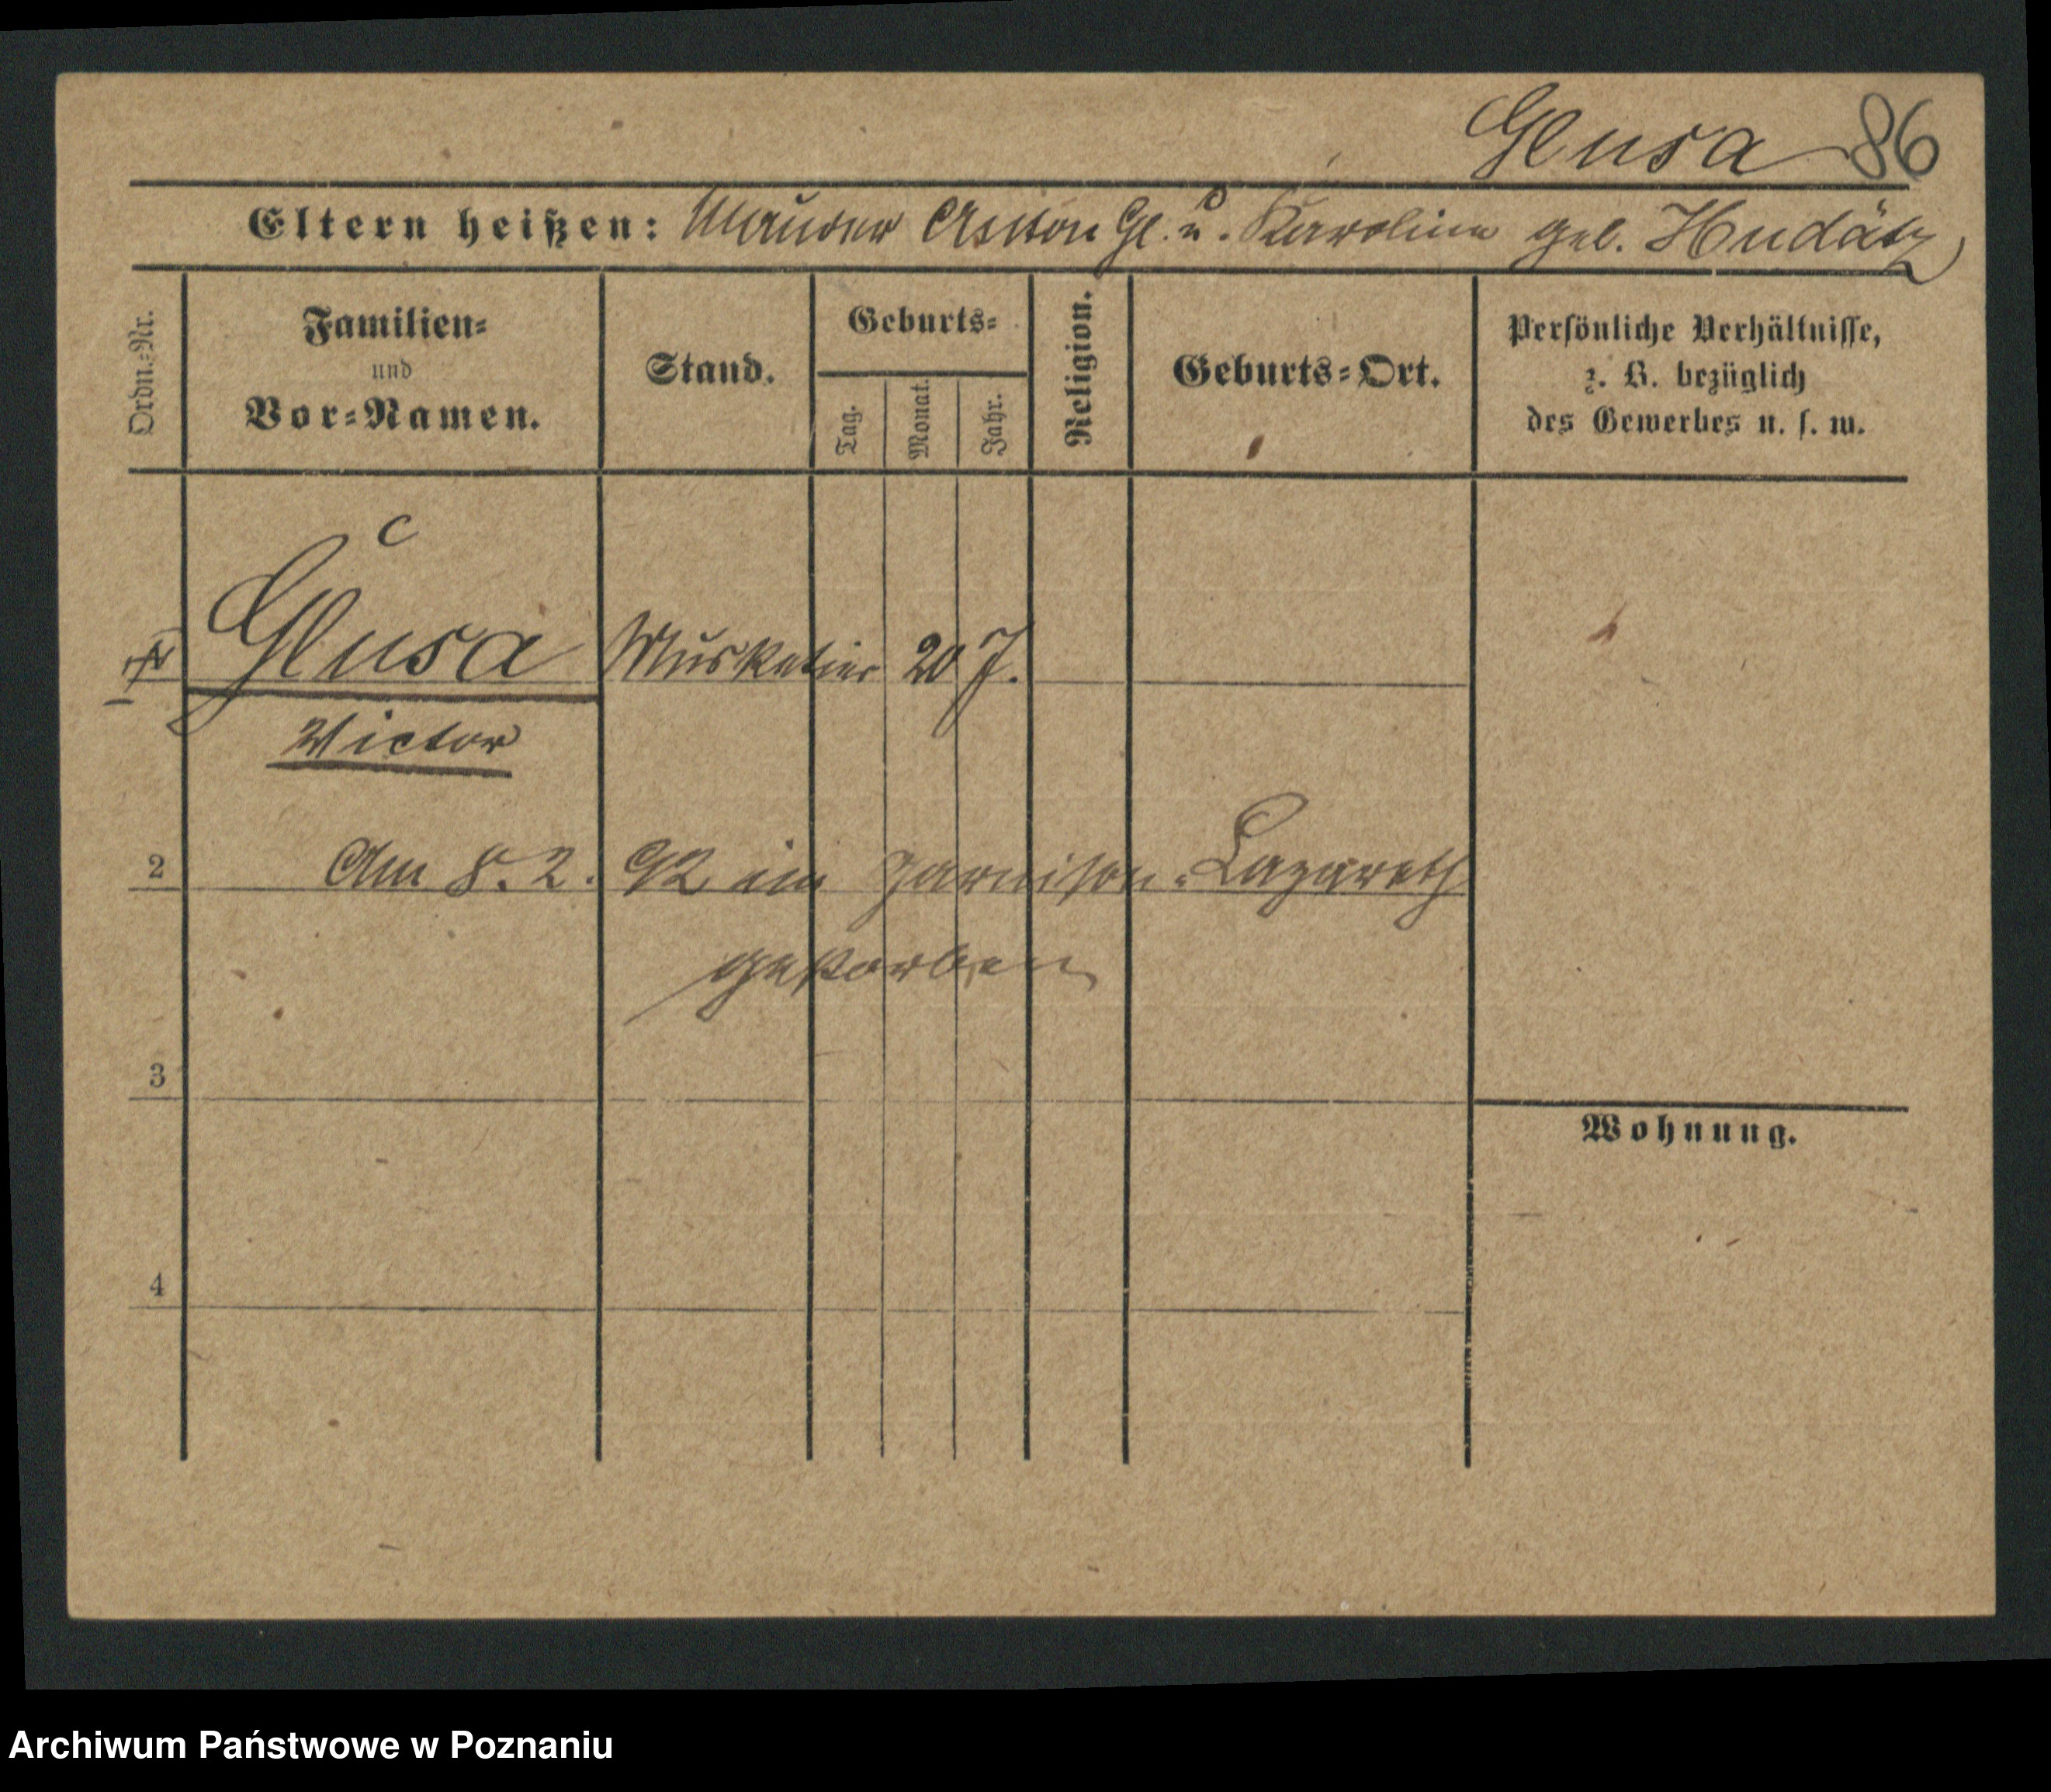 Glusa 86
Eltern heißen: Maurer Anton Gl. u. Karolina geb. Hudätz
Ordn.-Nr.
Familien-
und
Vor-Namen.
Stand.
Geburts-
Tag.
Monat.
Jahr.
Religion.
Geburts-Ort.
Persönliche Verhältnisse,
z. B. bezüglich
des Gewerbes u. s. w.
Glusa Musketier 20 J.
Victor
2 Am 8. 2. 92 im Garnison-Lazareth
gestorben
3
Wohnung.
4
Archiwum Państwowe w Poznaniu